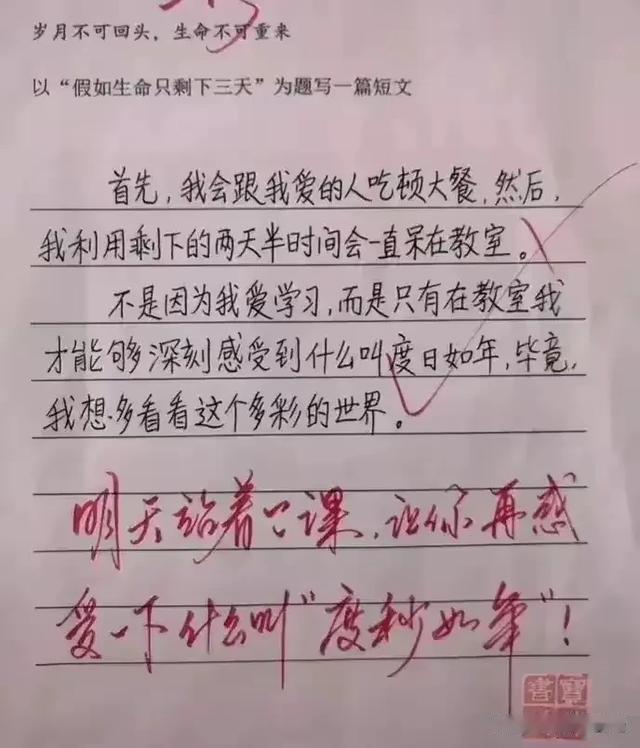 岁月不可回头，生命不可重来
以“假如生命只剩下三天”为题写一篇短文
首先，我会跟我爱的人吃顿大餐，然后，
我利用剩下的两天半时间会一直呆在教室。
不是因为我爱学习，而是只有在教室我
才能够深刻感受到什么叫度日如年，毕竟，
我想多看看这个多彩的世界。
明天站着上课，让你再感
受一下什么叫“度秒如年”！